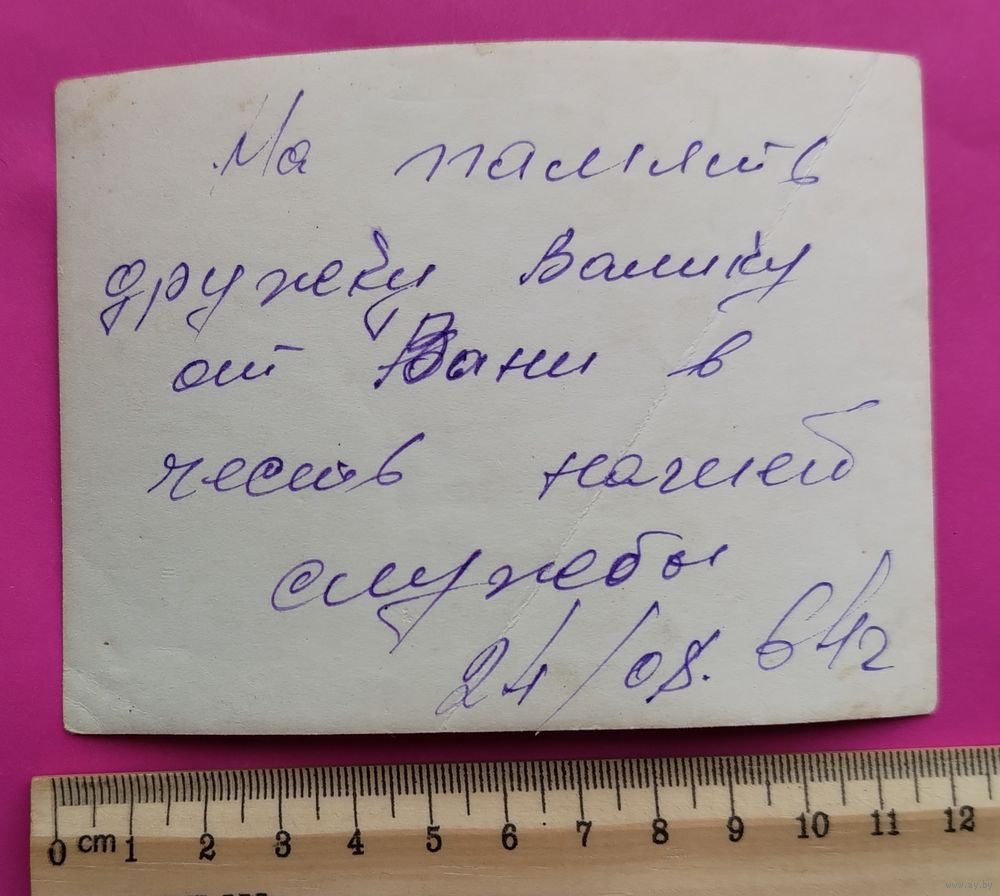 На память
дружку Валику
от Вани в
честь нашей
службы
24/08. 64г
0 cm 1 2 3 4 5 6 7 8 9 10 11 12
www.ay.by